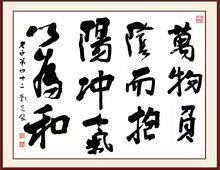 萬物負
陰而抱
陽沖氣
以為和
老子第四十二